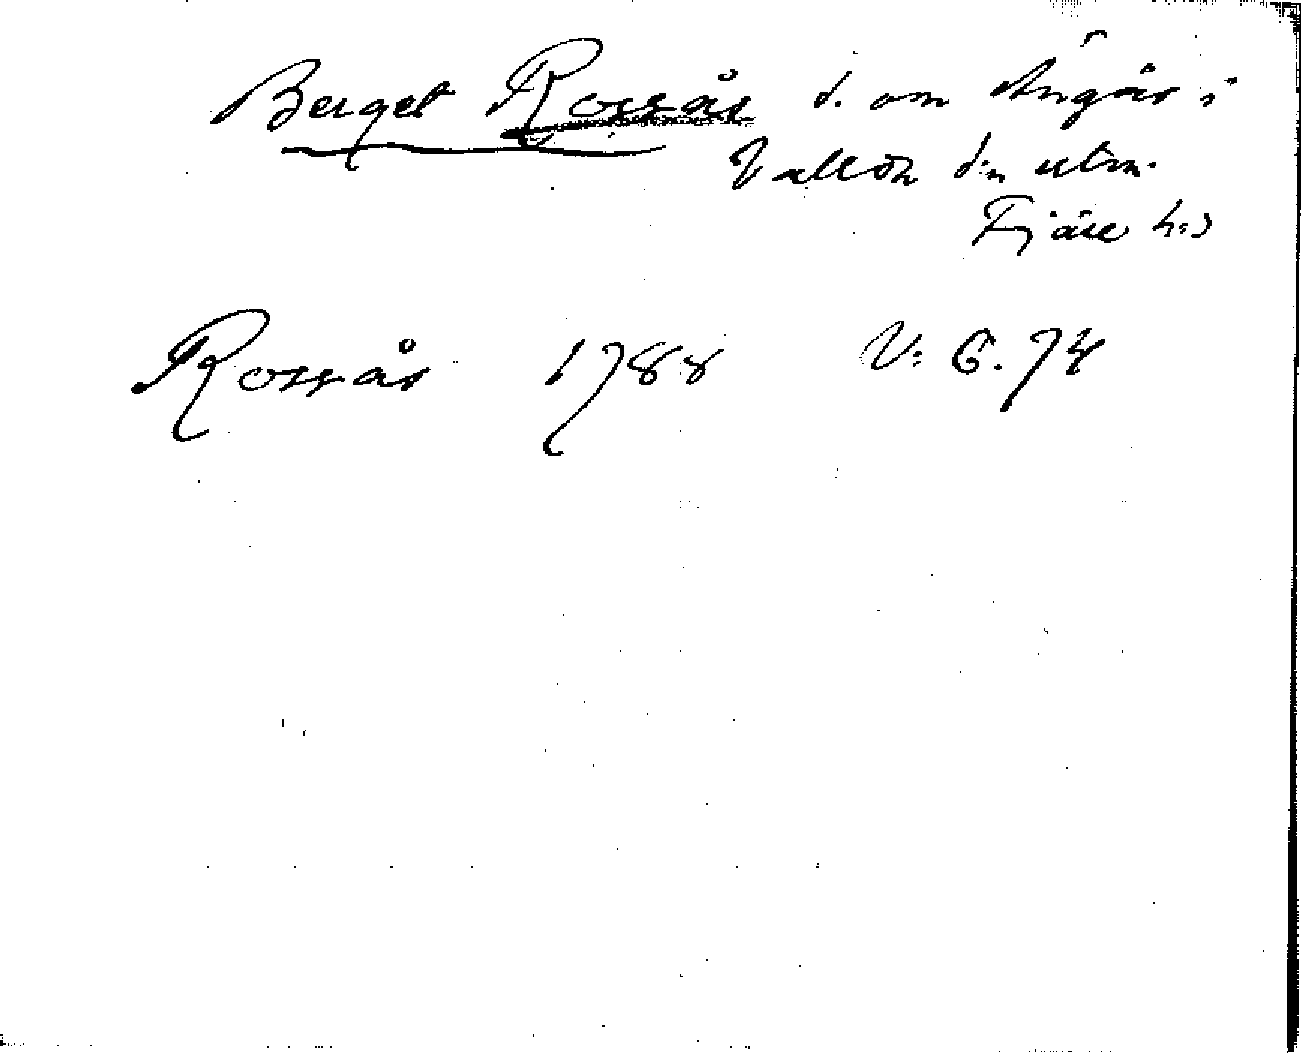 Berget Rossås d. om Stugås i
Vallda s:n utm.
Fjäre h:d
Rossås 1788 V: 6. 74